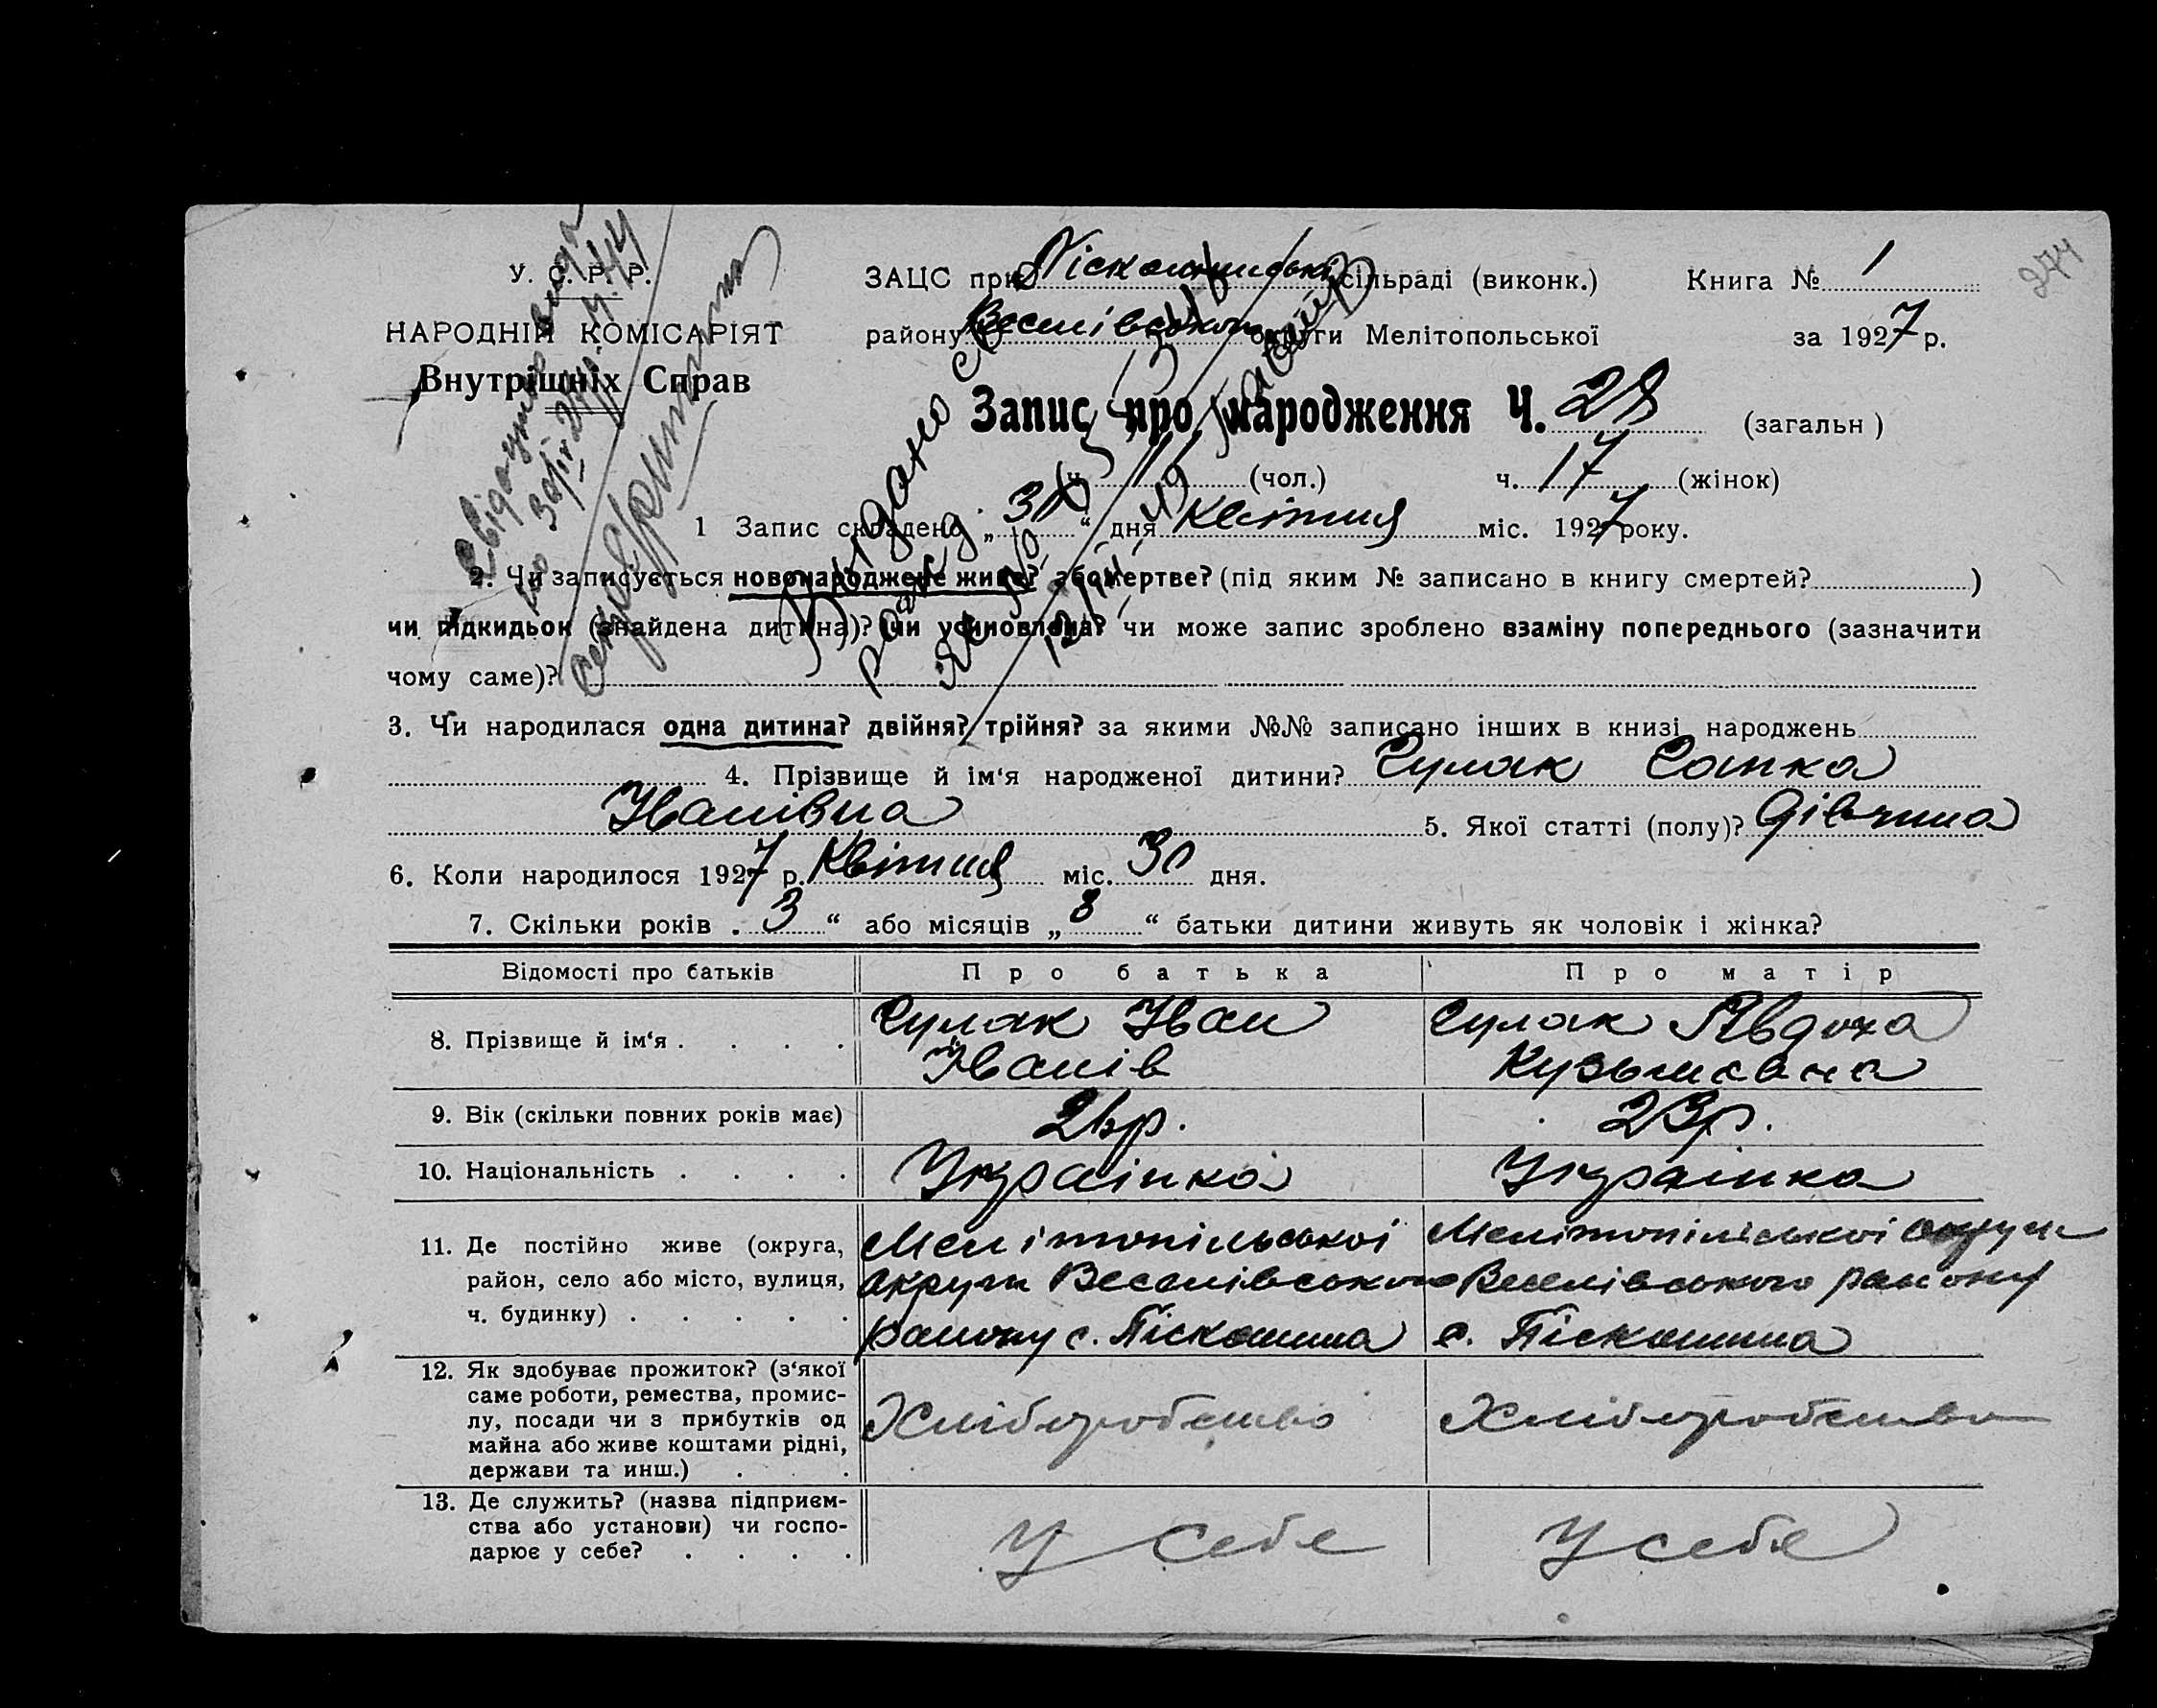 274
У. С. Р. Р.
НАРОДНІЙ КОМІСАРІЯТ
Внутрішніх Справ
ЗАЦС при сільраді (виконк.) Книга № 1
району Веселівського округи Мелітопольської за 1927 р.
Запис про народження Ч. 28 (загальн)
ч. 11 (чол.) ч. 17 (жінок)
1 Запис складено „30“ дня Квітня міс. 1927 року.
2. Чи записується новонароджене живе? або мертве? (під яким № записано в книгу смертей? )
чи підкидьок (знайдена дитина)? чи усиновлена? чи може запис зроблено взаміну попереднього (зазначити
чому саме)?
3. Чи народилася одна дитина? двійня? трійня? за якими №№ записано інших в книзі народжень
4. Прізвище й ім‘я народженої дитини? Гулак Ганка
Іванівна 5. Якої статті (полу)? Дівчина
6. Коли народилося 1927 р. Квітня міс. 30 дня.
7. Скільки років „3“ або місяців „8“ батьки дитини живуть як чоловік і жінка?
Відомості про батьків Про батька Про матір
8. Прізвище й ім‘я . . . . Гулак Іван Гулак Явдоха
Іванів
9. Вік (скільки повних років має) 26р. 23р.
10. Національність . . . . Українка Українка
11. Де постійно живе (округа, Мелітопільської Мелітопільської округи
район, село або місто, вулиця, округи Веселівського Веселівського району
ч. будинку) . . . . . району с. Піскошина с. Піскошина
12. Як здобуває прожиток? (з‘якої
саме роботи, ремества, промис-
лу, посади чи з прибутків од Хліборобство Хліборобство
майна або живе коштами рідні,
держави та инш.) . . .
13. Де служить? (назва підприєм-
ства або установи) чи госпо- У себе У себе
дарює у себе? . . . .